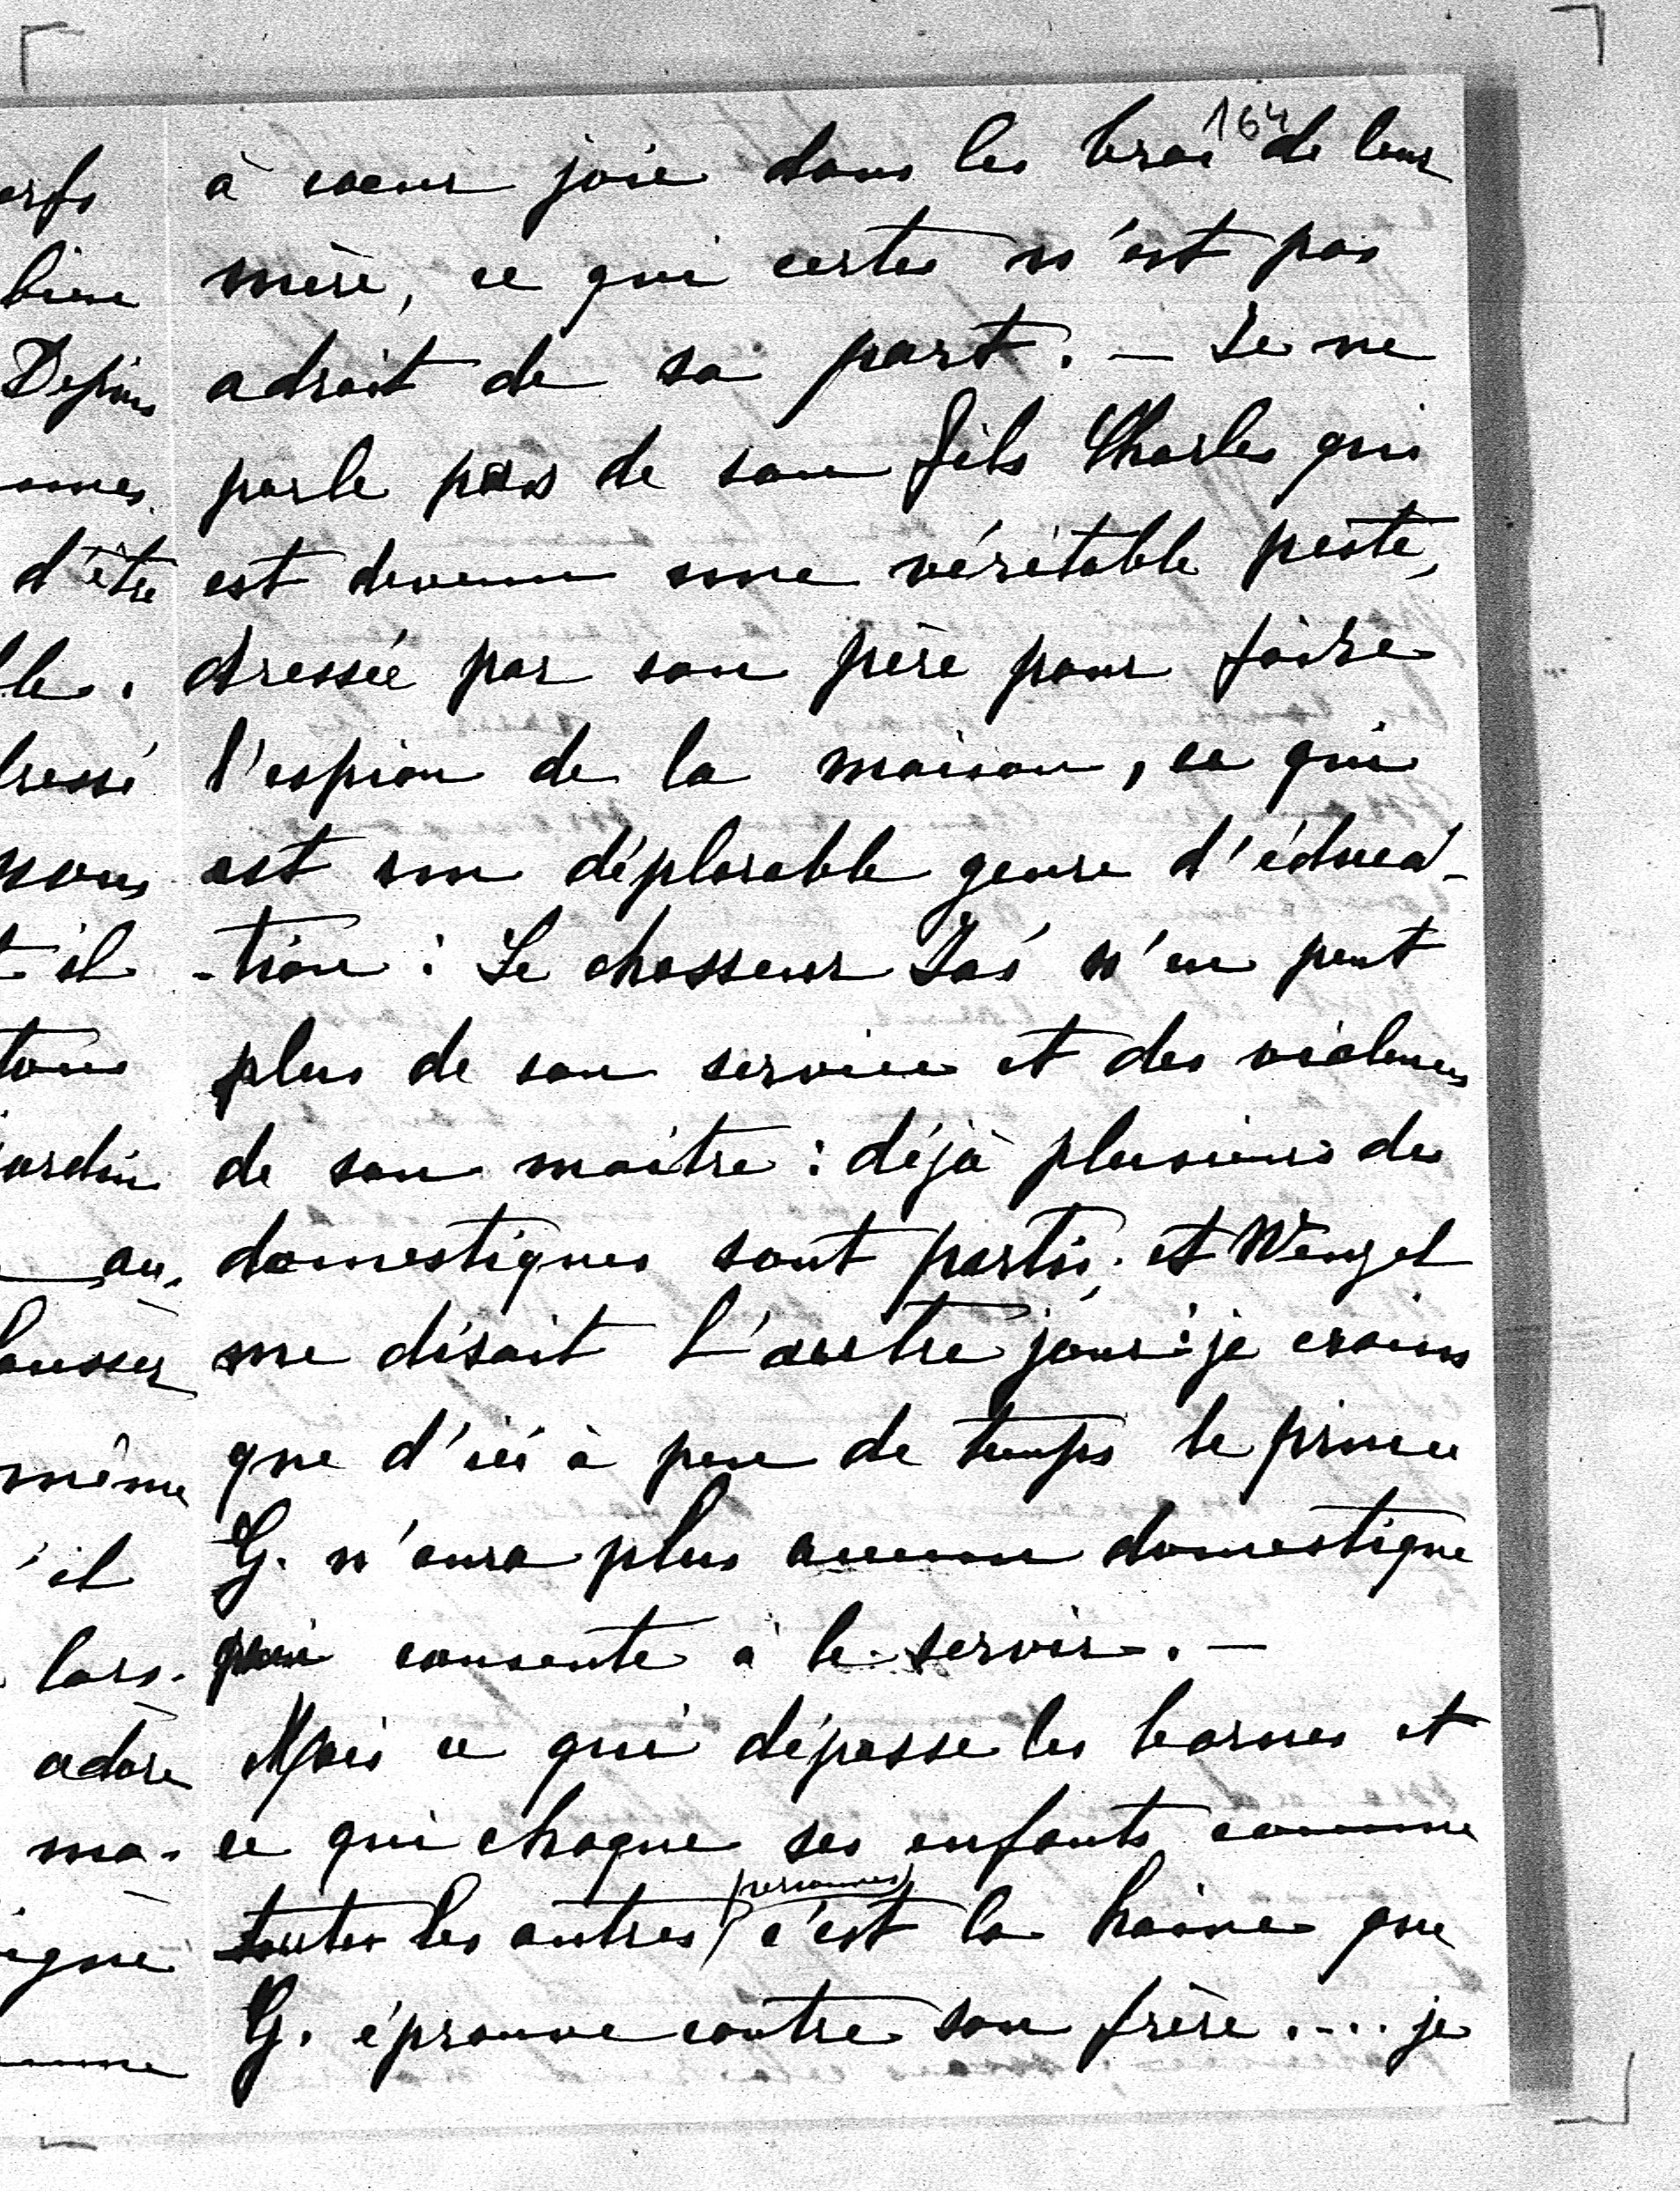 164
à coeur joie dans les bras de leur
mère, ce qui certes n'est pas
adroit de sa part. — Je ne
parle pas de son fils Charles qui
est devenu une véritable peste,
dressée par son père pour faire
l'espion de la maison, ce qui
est un déplorable genre d'éduca-
-tion : Le chasseur n'en peut
plus de son service et des violences
de son maître : déjà plusieurs des
domestiques sont partis, et Wenzel
me disait l'autre jour : je crains
que d'ici à peu de temps le prince
G. n'aura plus aucun domestique
qui consente à le servir. —
Mais ce qui dépasse les bornes et
ce qui choque ses enfants comme
toutes les autres personnes c'est la haine que
G. éprouve contre son frère .... je
erfs
bien
Depuis
d'être
ble.
dressé
nous
t il
tous
jardin
au,
même
'il
lors-
adore
ma-